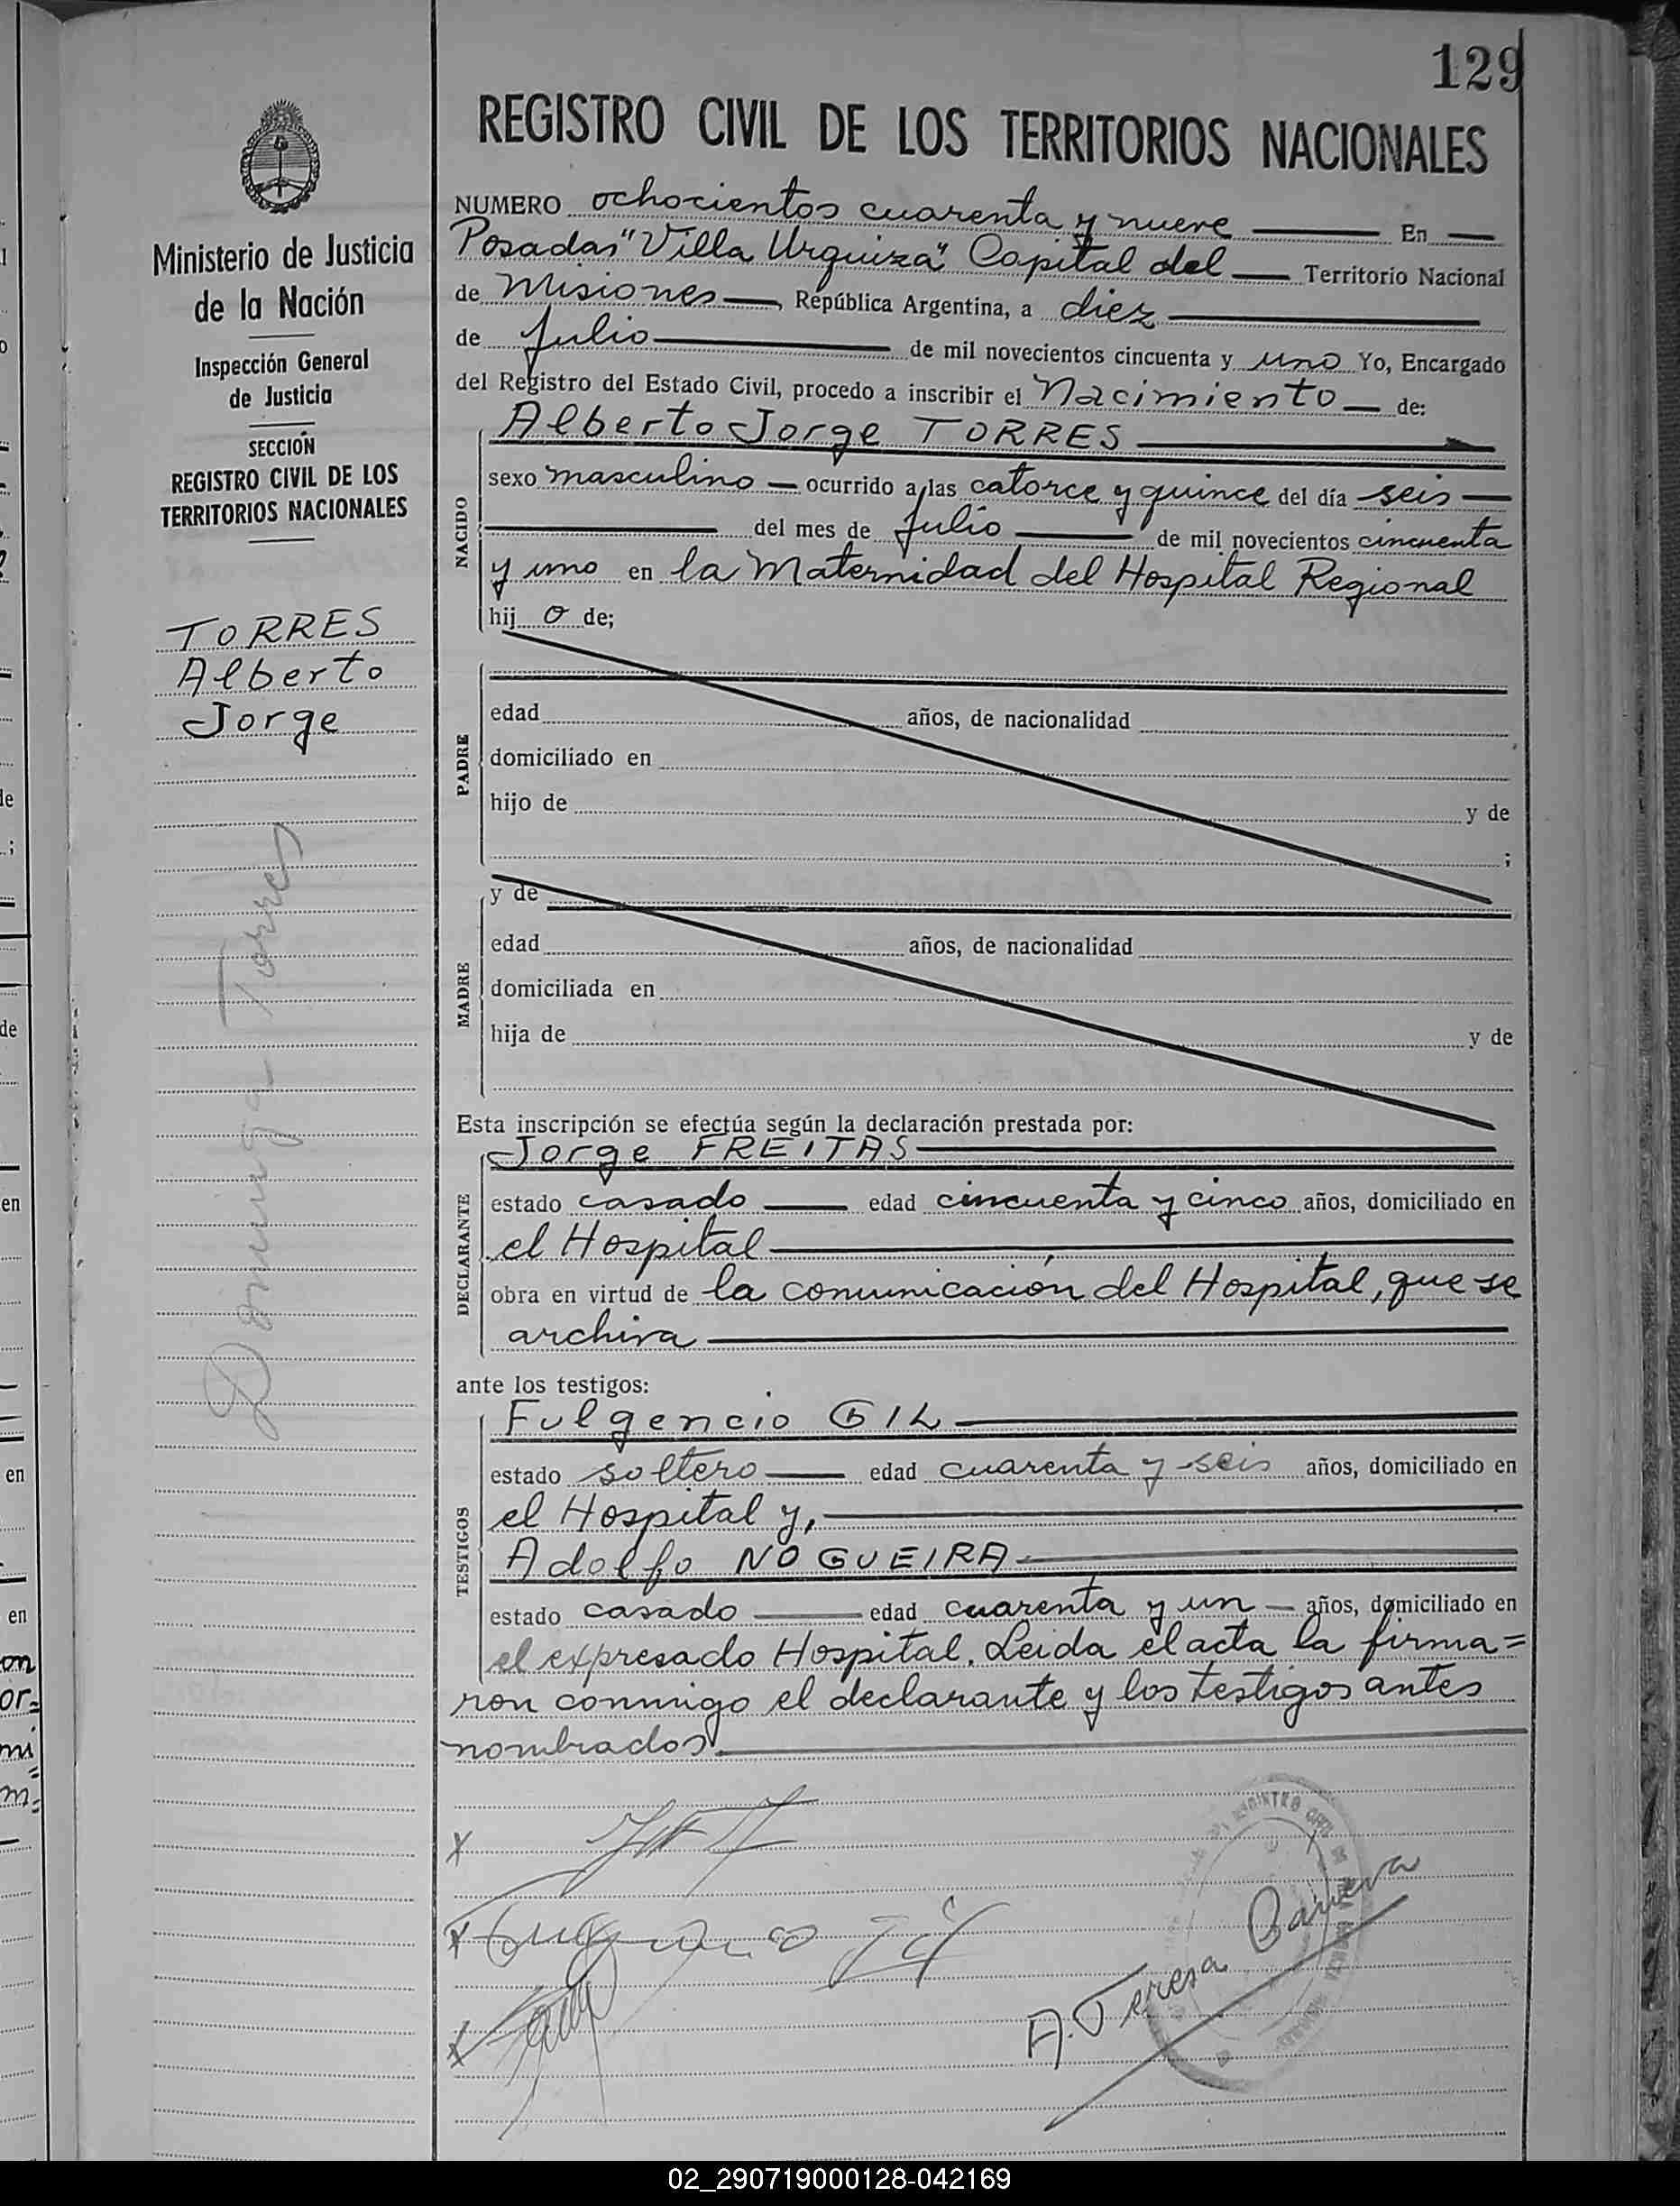 129
REGISTRO CIVIL DE LOS TERRITORIOS NACIONALES
Ministerio de Justicia
de la Nación
Inspección General
de Justicia
SECCIÓN
REGISTRO CIVIL DE LOS
TERRITORIOS NACIONALES
TORRES
Alberto
Jorge
Torres
NUMERO ochocientos cuarenta y nueve En
Posadas "Villa Urquiza" Capital del Territorio Nacional
de Misiones, República Argentina, a diez
de julio de mil novecientos cincuenta y uno Yo, Encargado
del Registro del Estado Civil, procedo a inscribir el Nacimiento de:
NACIDO
Alberto Jorge TORRES
sexo masculino ocurrido a las catorce y quince del día seis
del mes de julio de mil novecientos cincuenta
y uno en la Maternidad del Hospital Regional
hij o de;
PADRE
edad años, de nacionalidad
domiciliado en
hijo de y de
;
MADRE
y de
edad años, de nacionalidad
domiciliada en
hija de y de
Esta inscripción se efectúa según la declaración prestada por:
DECLARANTE
Jorge FREITAS
estado casado edad cincuenta y cinco años, domiciliado en
el Hospital
obra en virtud de la comunicación del Hospital, que se
archiva
ante los testigos:
TESTIGOS
Fulgencio GIL
estado soltero edad cuarenta y seis años, domiciliado en
el Hospital y,
Adolfo NOGUEIRA
estado casado edad cuarenta y un años, domiciliado en
el expresado Hospital. Leida el acta la firma=
ron conmigo el declarante y los testigos antes
nombrados
x
x Fulgencio Gil
x
A. Teresa
02_290719000128-042169